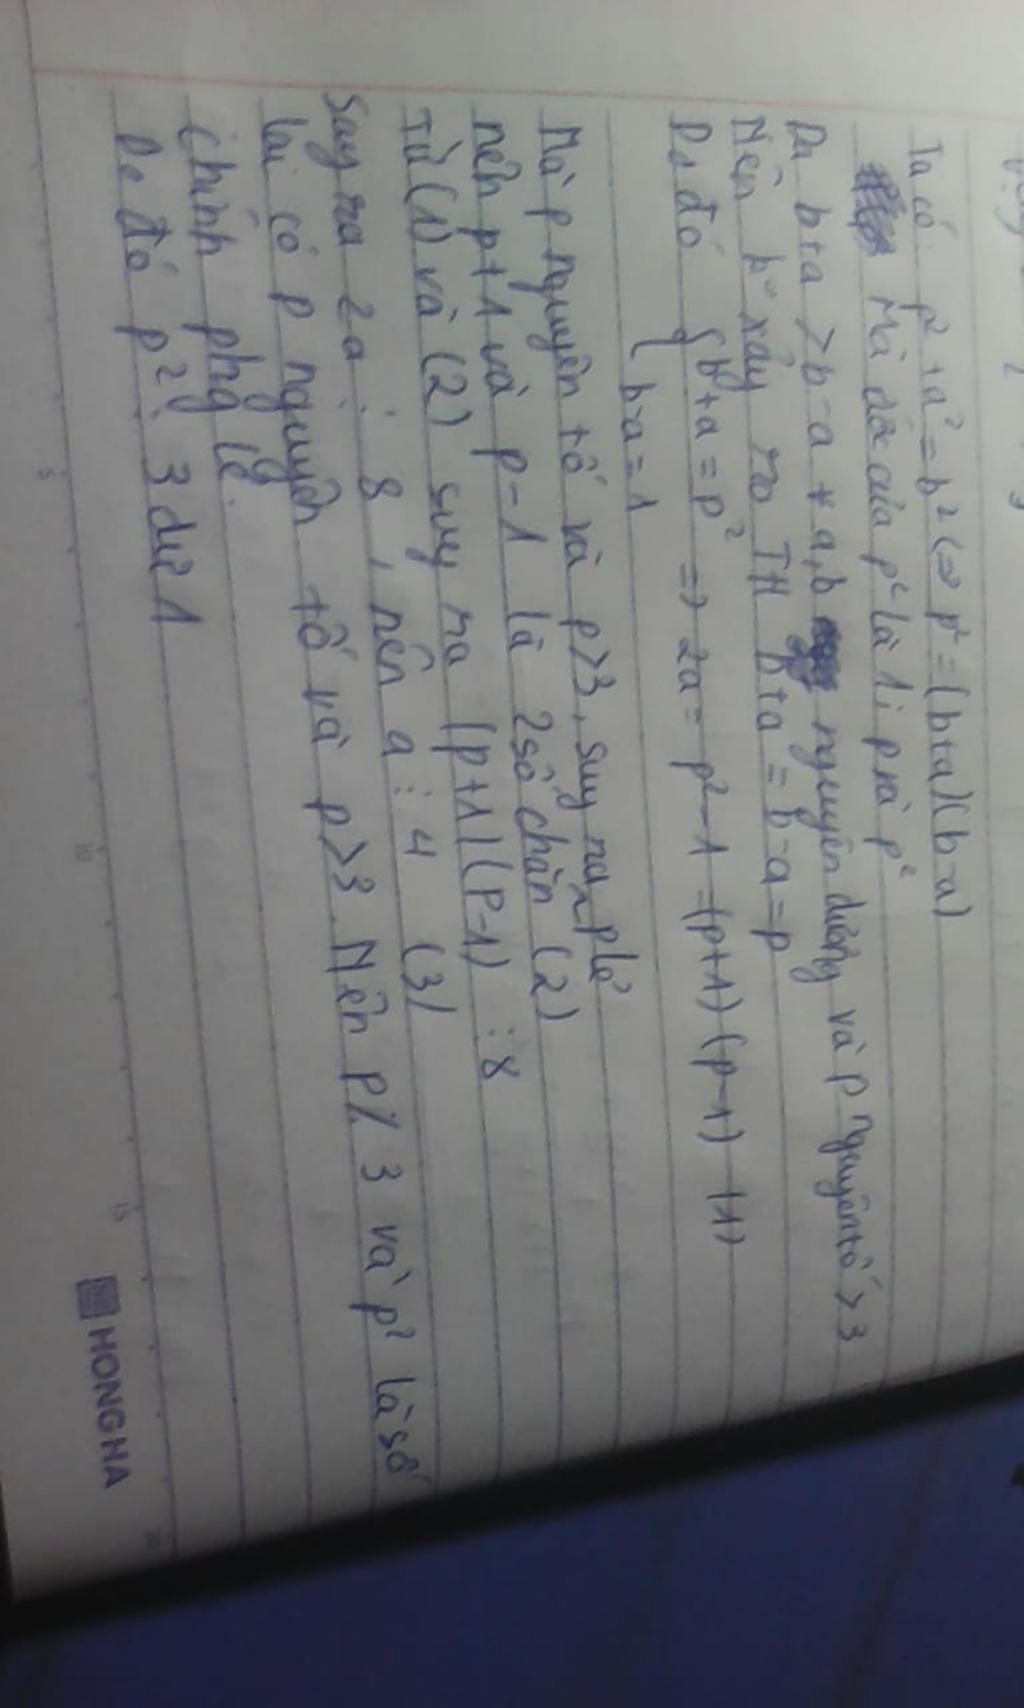 Ta có p² + a² = b² (=) p² = (b+a)(b-a)
Mà ước của p² là 1; p và p²
Do b+a > b-a ∀ a,b nguyên dương và p nguyên tố > 3
Nên k° xảy ra TH b+a = b-a = p
Do đó { b+a = p² => 2a = p² - 1 = (p+1)(p-1) (1)
b-a = 1
Mà p nguyên tố và p>3, suy ra p lẻ
nên p+1 và p-1 là 2 số chẵn (2)
Từ (1) và (2) suy ra (p+1)(p-1) ⋮ 8
Suy ra 2a ⋮ 8, nên a ⋮ 4 (3)
lại có p nguyên tố và p>3. Nên p ⋮̸ 3 và p² là số
chính phg lẻ.
Do đó p² : 3 dư 1
5
10
15
20
HONG HA